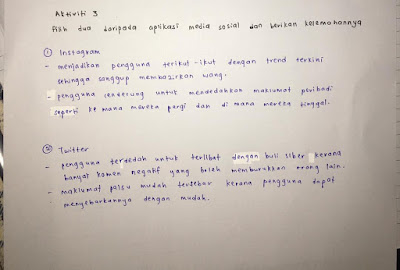 Aktiviti 3
Pilih dua daripada aplikasi media sosial dan berikan kelemahannya
① Instagram
- menjadikan pengguna terikut-ikut dengan trend terkini
sehingga sanggup membazirkan wang.
- pengguna cenderung untuk mendedahkan maklumat peribadi
seperti ke mana mereka pergi dan di mana mereka tinggal.
② Twitter
- pengguna terdedah untuk terlibat dengan buli siber kerana
banyak komen negatif yang boleh memburukkan orang lain.
- maklumat palsu mudah tersebar kerana pengguna dapat
menyebarkannya dengan mudah.